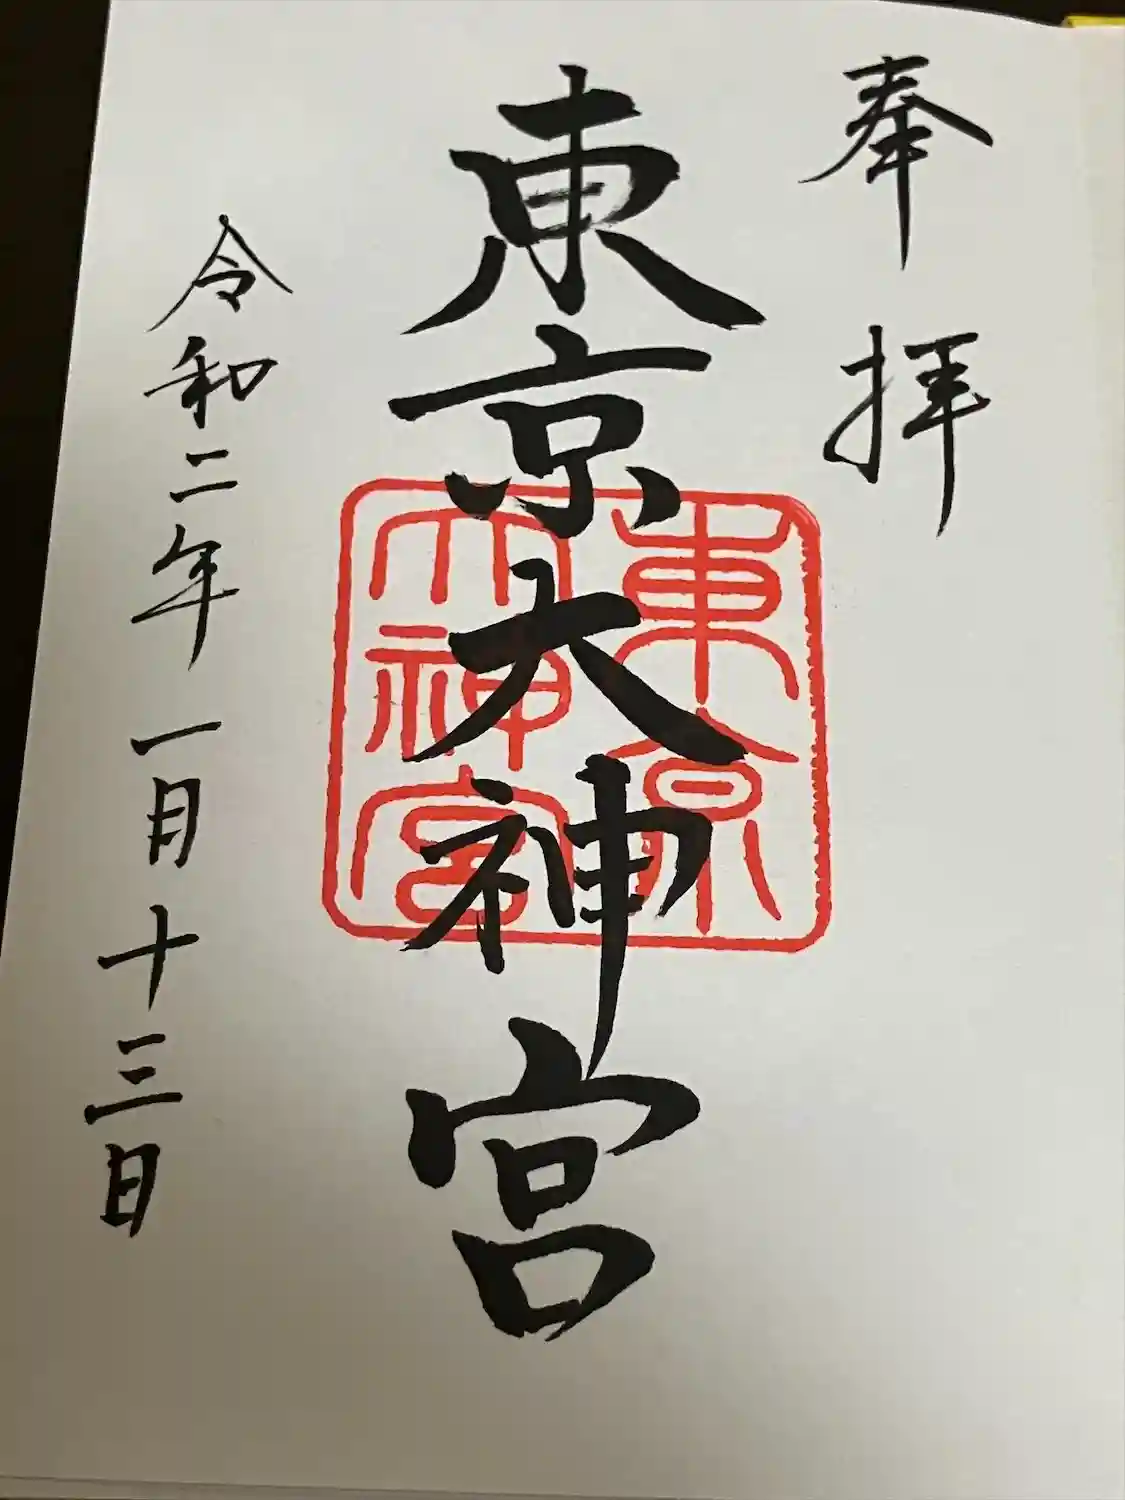 奉拝
東京大神宮
東京
大神宮
令和二年一月十三日